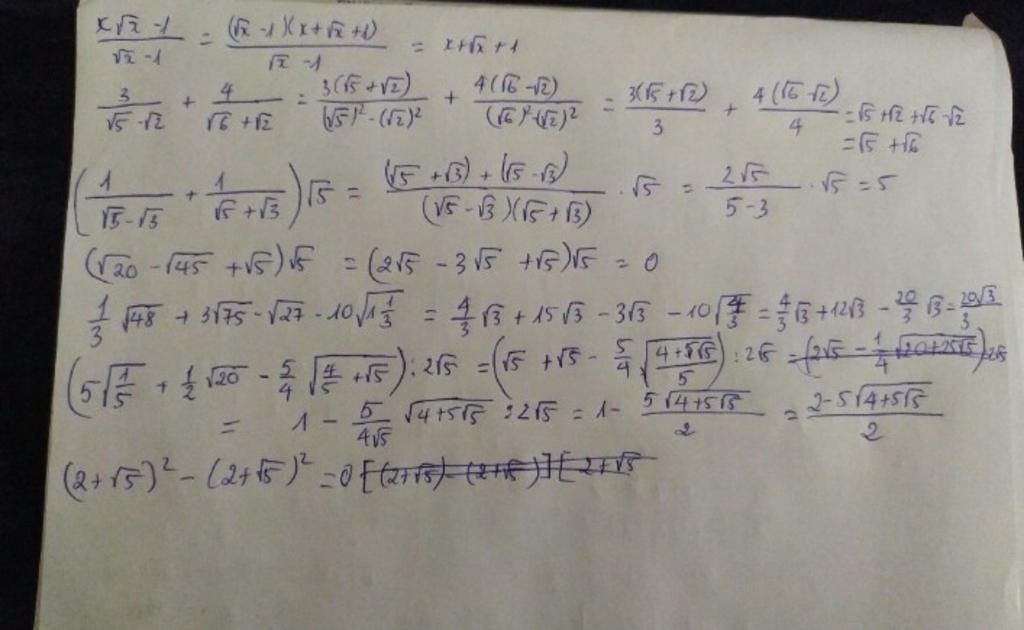 x√x - 1 / √x - 1 = (√x - 1)(x + √x + 1) / √x - 1 = x + √x + 1
3 / √5 - √2 + 4 / √6 + √2 = 3(√5 + √2) / (√5)² - (√2)² + 4(√6 - √2) / (√6)² - (√2)² = 3(√5 + √2) / 3 + 4(√6 - √2) / 4 = √5 + √2 + √6 - √2
= √5 + √6
(1 / √5 - √3 + 1 / √5 + √3)√5 = (√5 + √3) + (√5 - √3) / (√5 - √3)(√5 + √3) · √5 = 2√5 / 5 - 3 · √5 = 5
(√20 - √45 + √5)√5 = (2√5 - 3√5 + √5)√5 = 0
1/3 √48 + 3√75 - √27 - 10√1 1/3 = 4/3 √3 + 15√3 - 3√3 - 10√4/3 = 4/3 √3 + 12√3 - 20/3 √3 = 20√3 / 3
(5√1/5 + 1/2 √20 - 5/4 √4/5 + √5) : 2√5 = (√5 + √5 - 5/4 √4 + 5√5 / 5) : 2√5 = (2√5 - 1/4 √20 + 25√5) 2√5
= 1 - 5 / 4√5 √4 + 5√5 : 2√5 = 1 - 5√4 + 5√5 / 2 = 2 - 5√4 + 5√5 / 2
(2 + √5)² - (2 + √5)² = 0 [(2 + √5) - (2 + √5)] [2 + √5